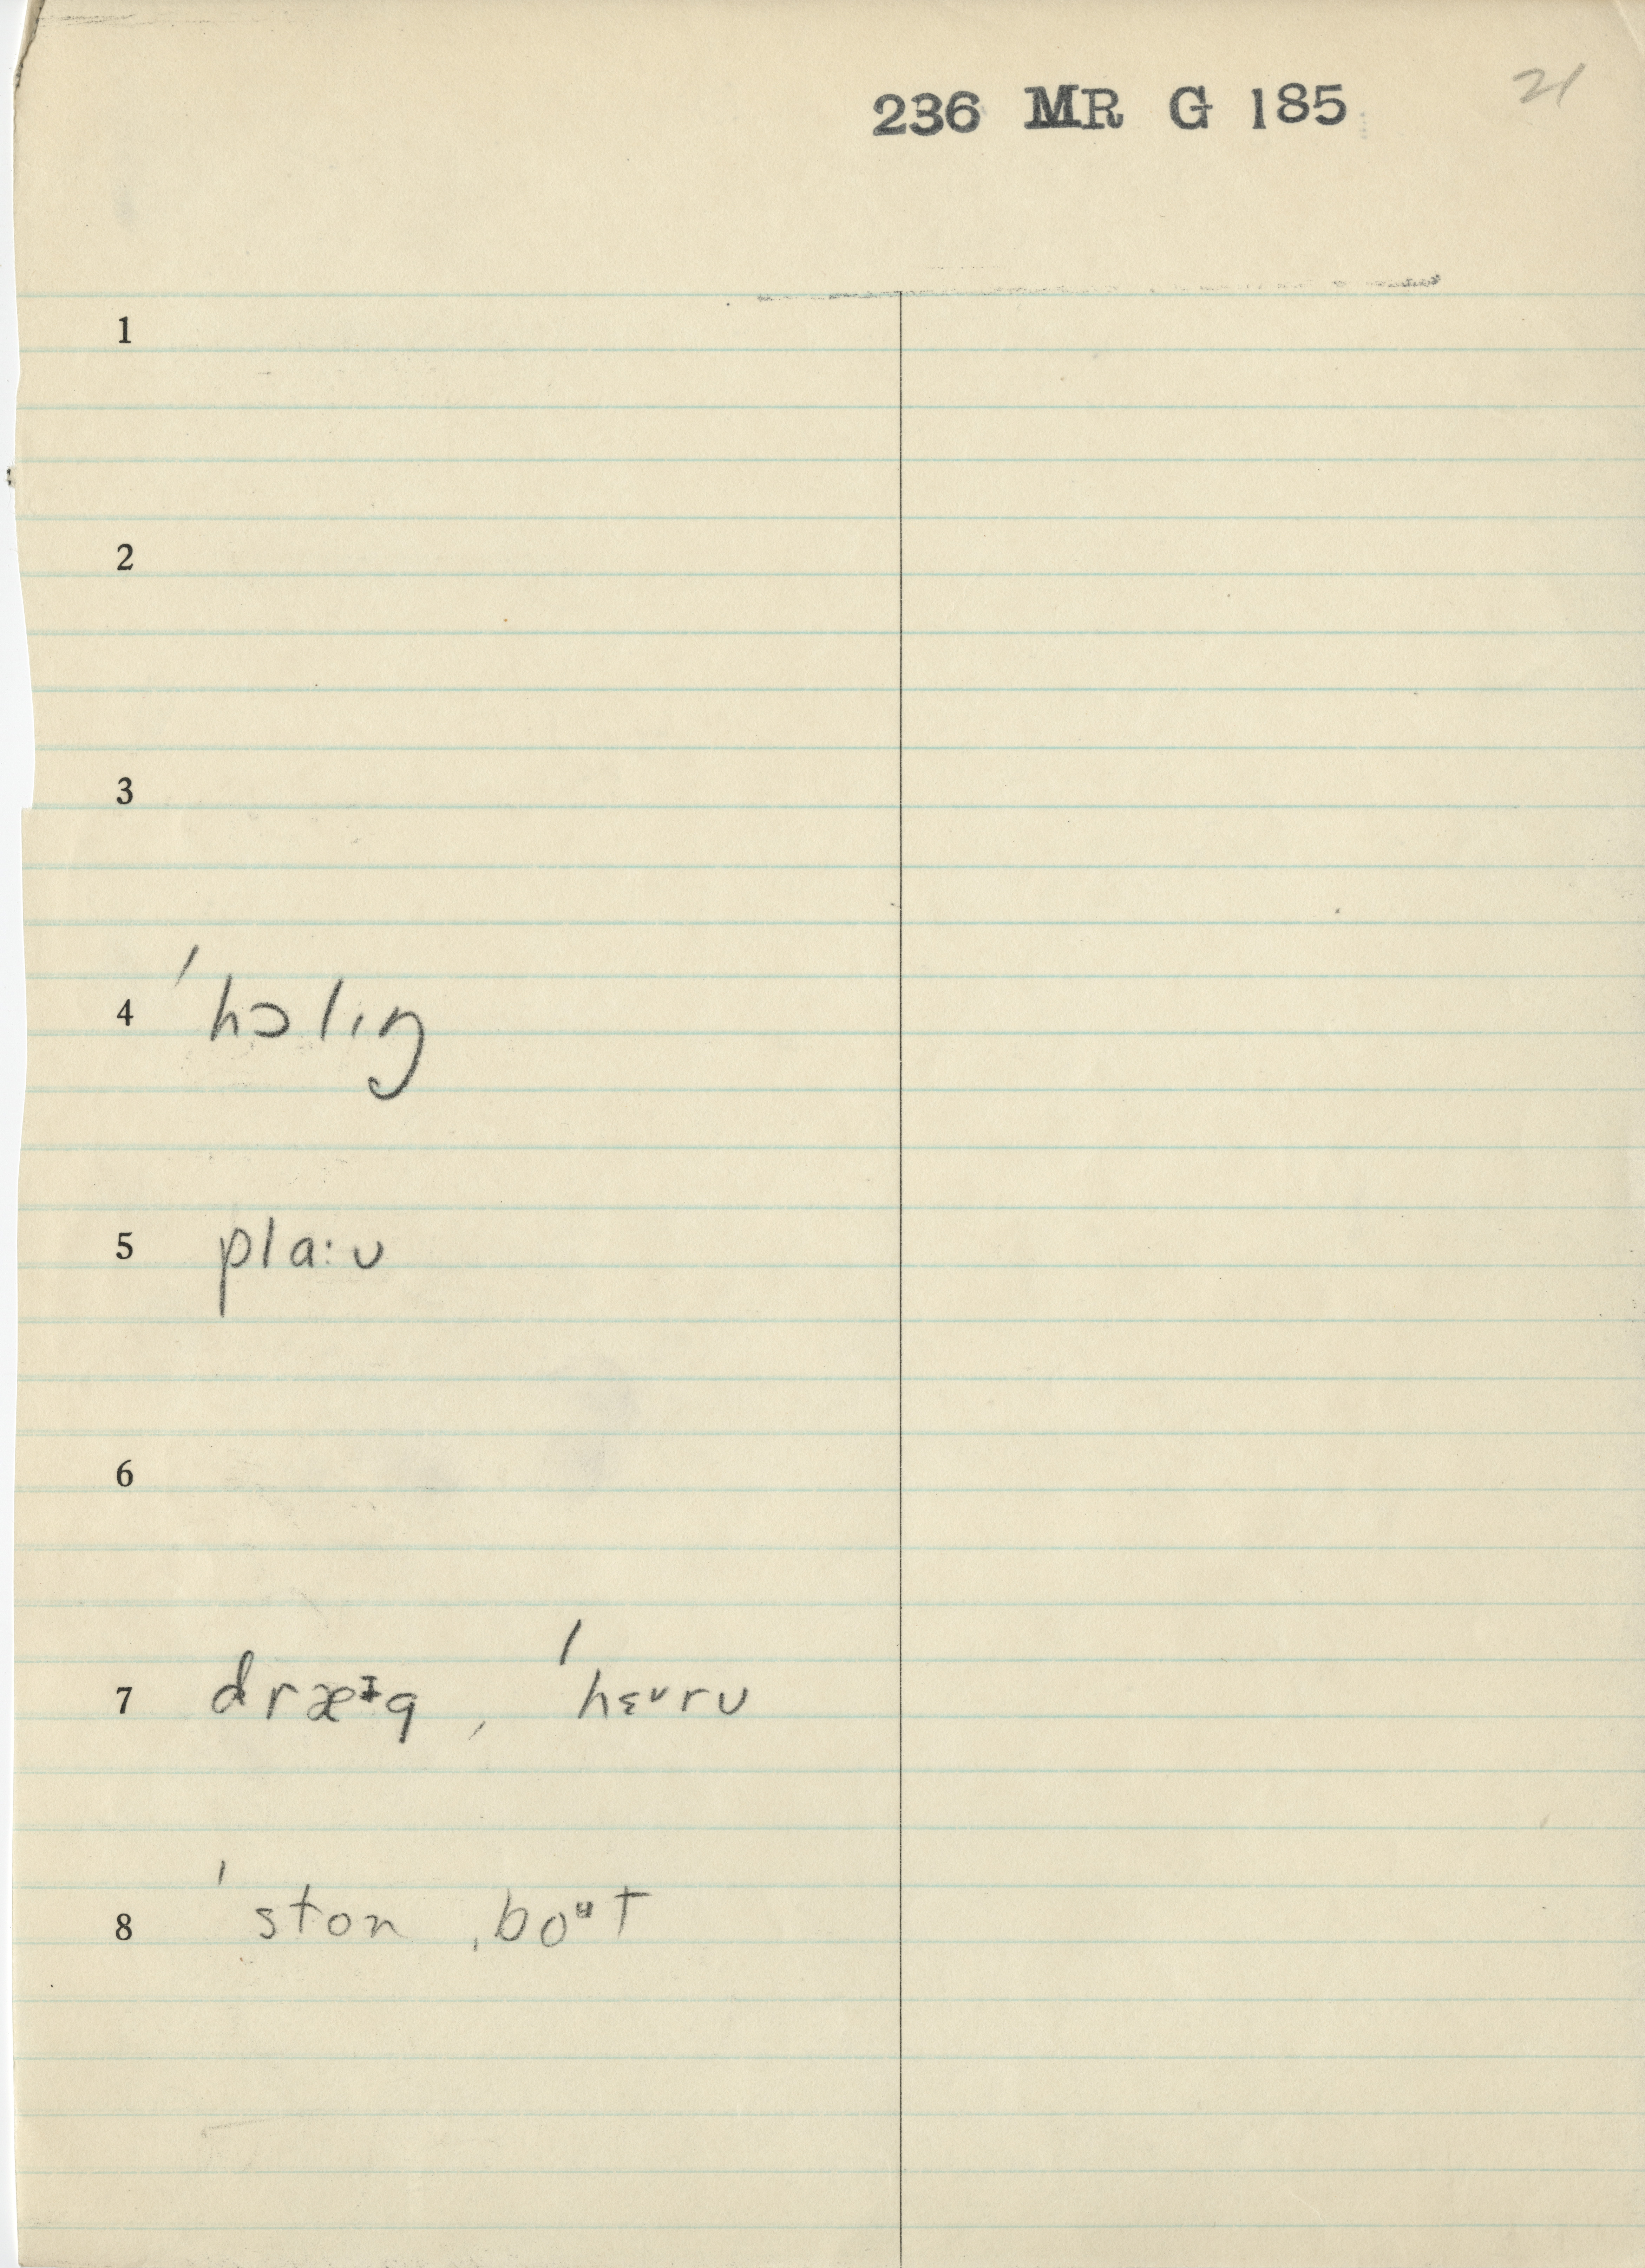 236 MR G 185 21
1
2
3
4 ˈhɔlıŋ
5 pla:ʋ
6
7 dræᶧg, ˈhɛᶹrʋ
8 ˈston ˌboᶶt